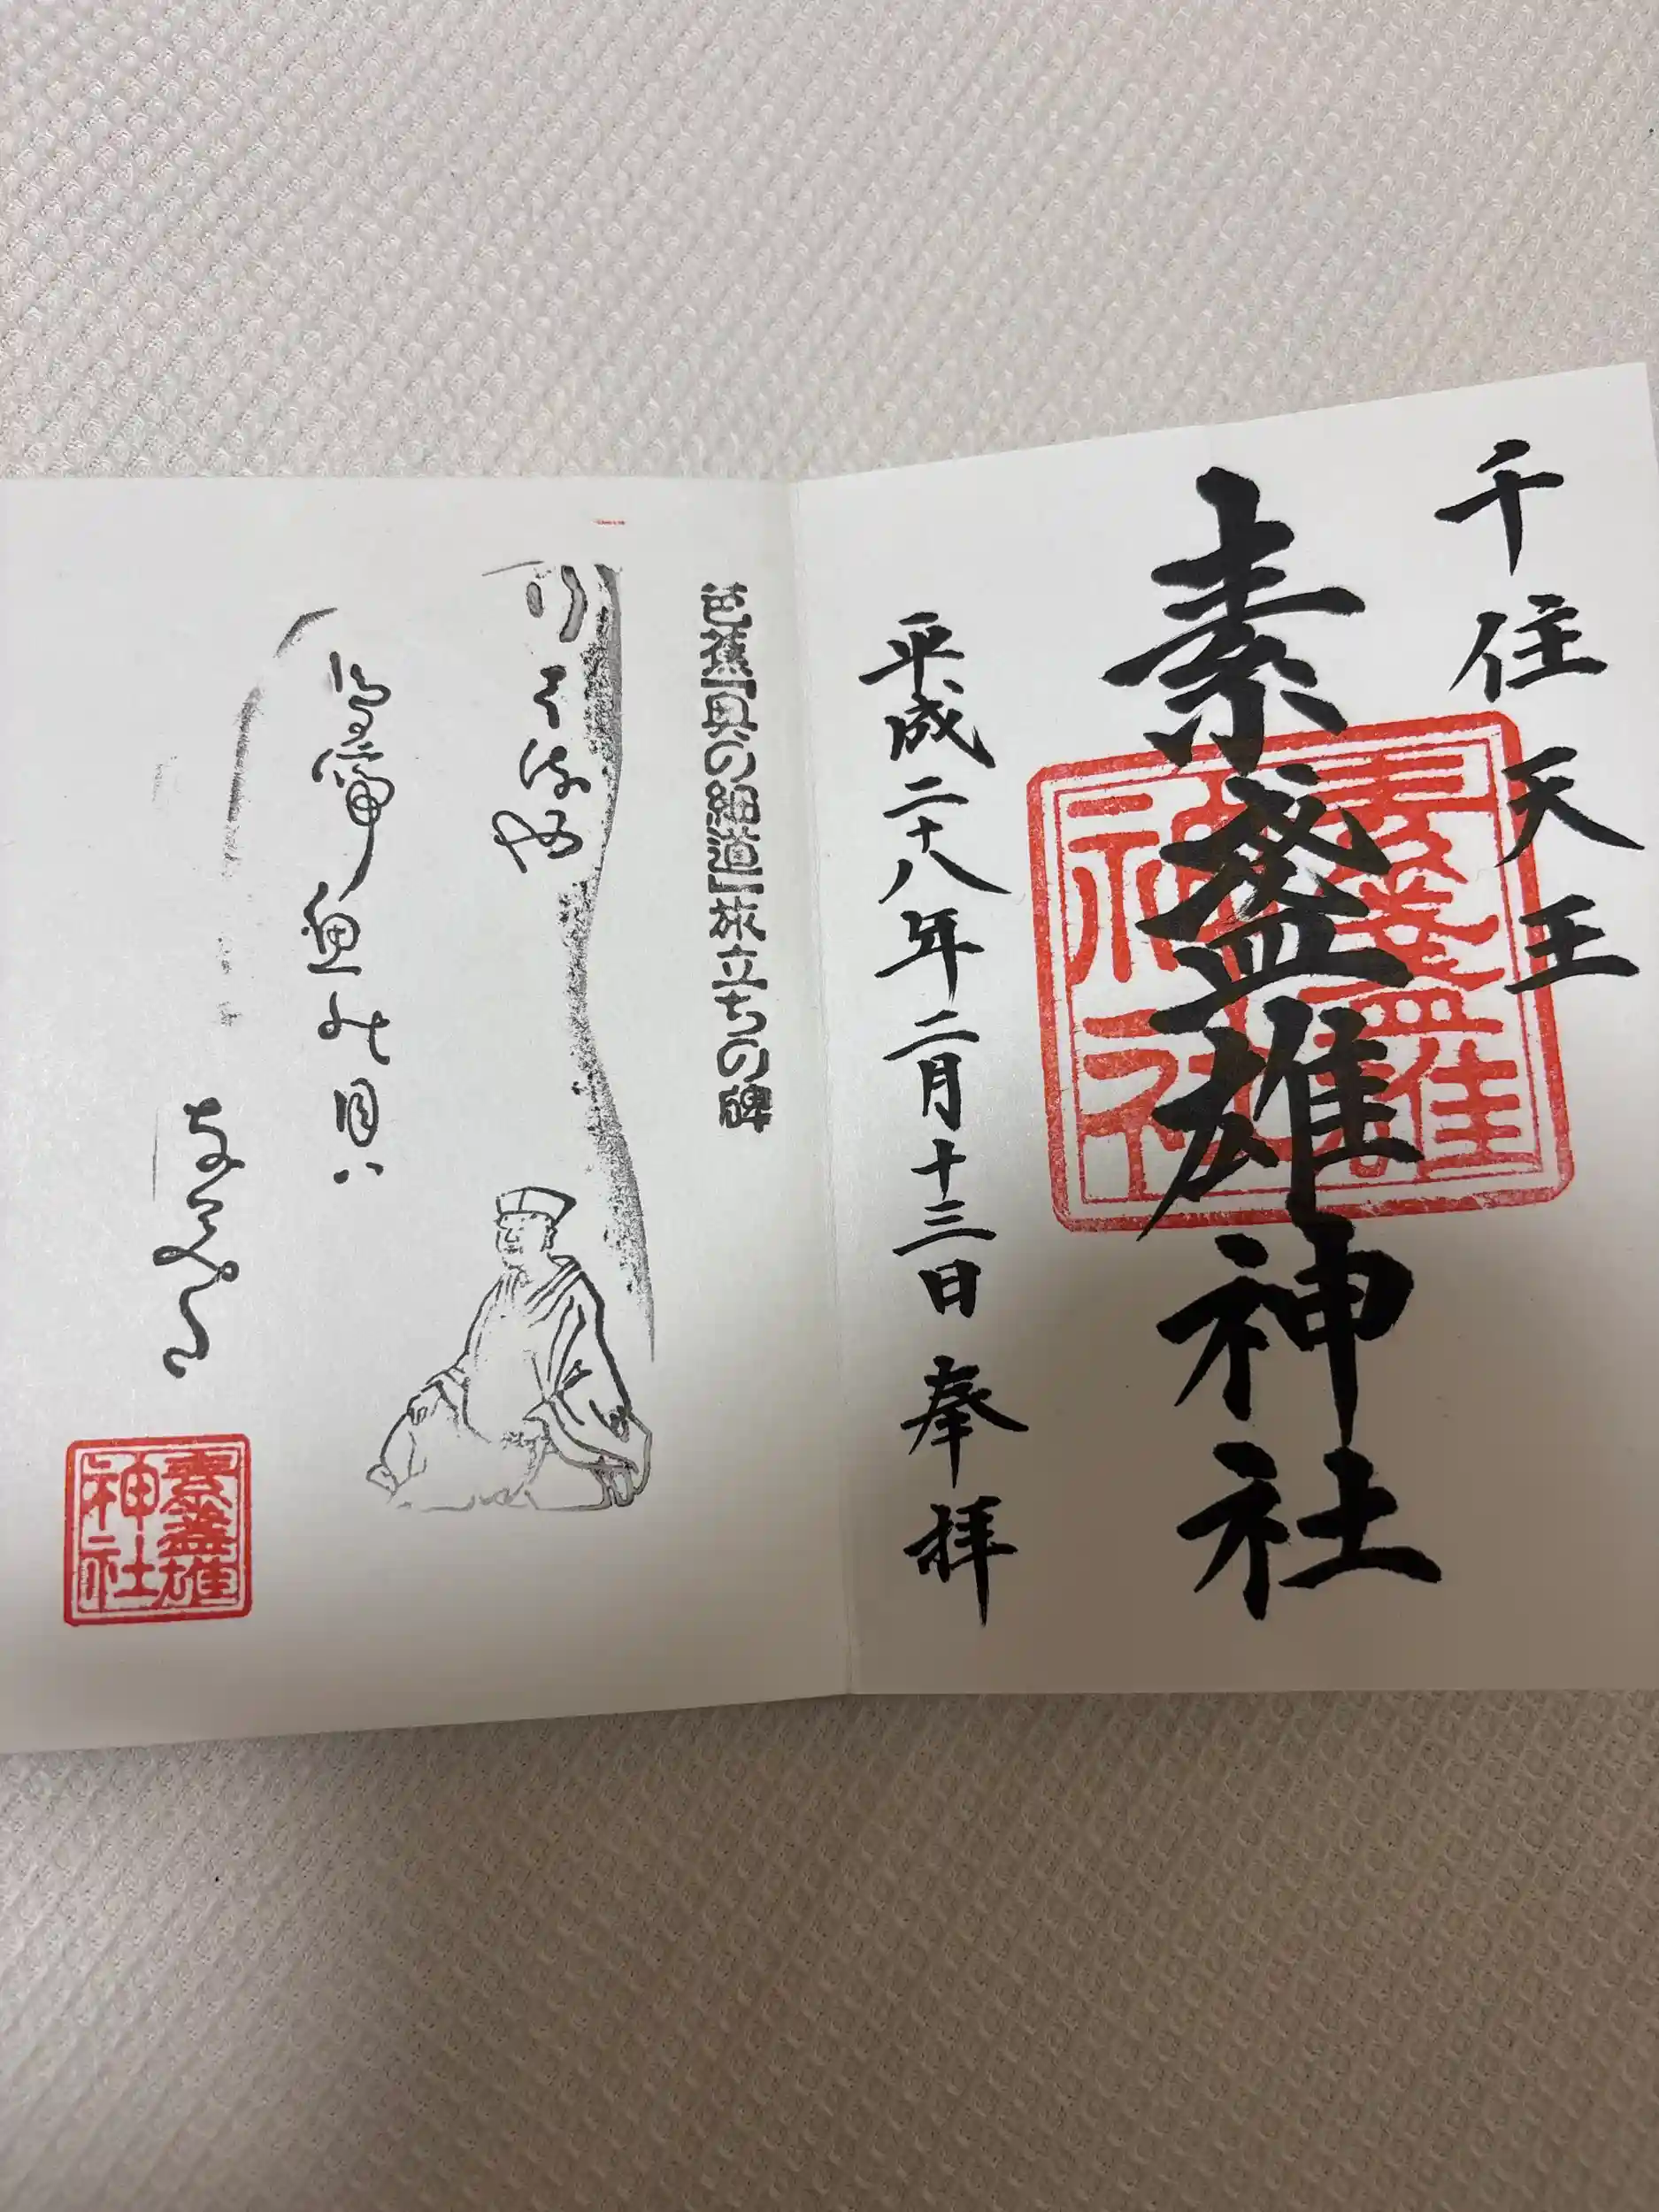 千住天王
素盞雄神社
素盞雄
神社
平成二十八年二月十三日 奉拝
芭蕉「奥の細道」旅立ちの碑
鳥啼魚の目ハ
素盞雄
神社